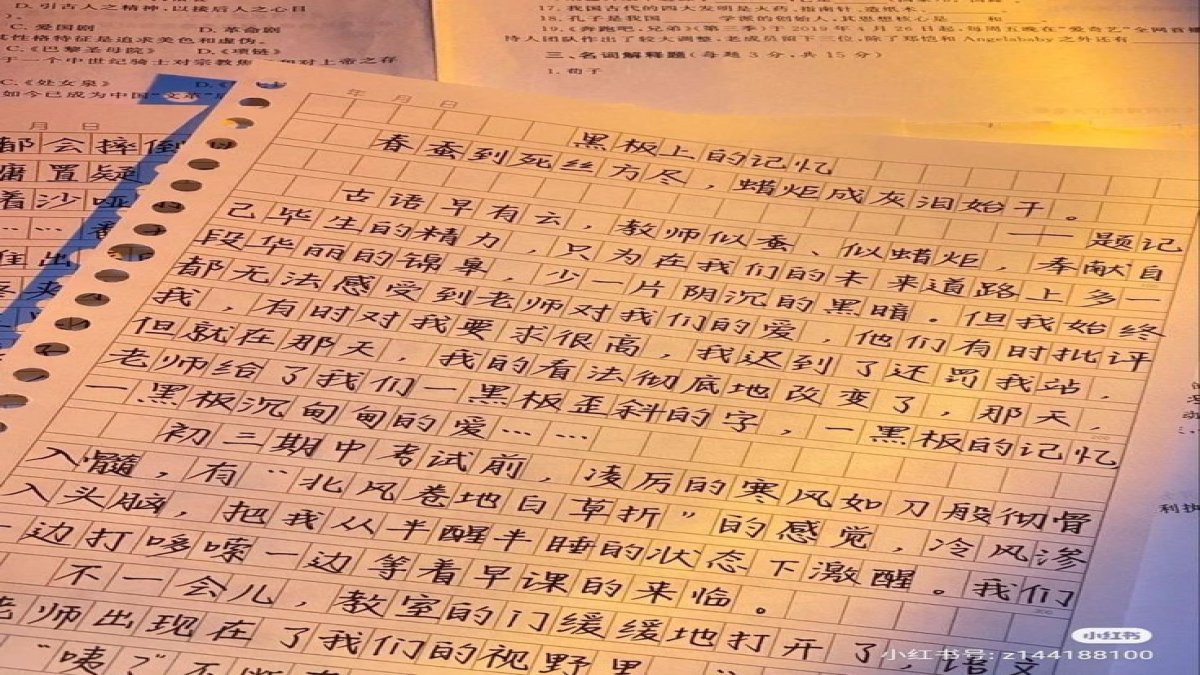 D. 引古人之精神,以接后人之心目
C. 爱国剧 D. 革命剧
其性格特征是追求美色和虚伪。
C.《巴黎圣母院》 D.《项链》
C.《处女泉》
17. 我国古代的四大发明是火药、指南针、造纸术
18. 孔子是我国 学派的创始人,其思想核心是 和
19.《奔跑吧,兄弟》(第三季)于2019年4月26日起,每周五晚在“爱奇艺”全网首播
三、名词解释题(每题3分,共15分)
1. 荀子
月 日
都会摔倒
庸置疑
着沙哑
住出
年 月 日
黑板上的记忆
春蚕到死丝方尽,蜡炬成灰泪始干。
——题记
古语早有云,教师似蚕、似蜡炬,奉献自
己毕生的精力,只为在我们的未来道路上多一
段华丽的锦皋,少一片阴沉的黑暗。但我始终
都无法感受到老师对我们的爱,他们有时批评
我,有时对我要求很高,我迟到了还罚我站,
但就在那天,我的看法彻底地改变了,那天,
老师给了我们一黑板歪斜的字,一黑板的记忆
一黑板沉甸甸的爱……
初三期中考试前,凌厉的寒风如刀般彻骨
入髓,有“北风卷地白草折”的感觉,冷风渗
入头脑,把我从半醒半睡的状态下激醒。我们
一边打哆嗦一边等着早课的来临。
不一会儿,教室的门缓缓地打开了,语文
老师出现在了我们的视野里
“咦?”不
小红书
小红书号: z144188100